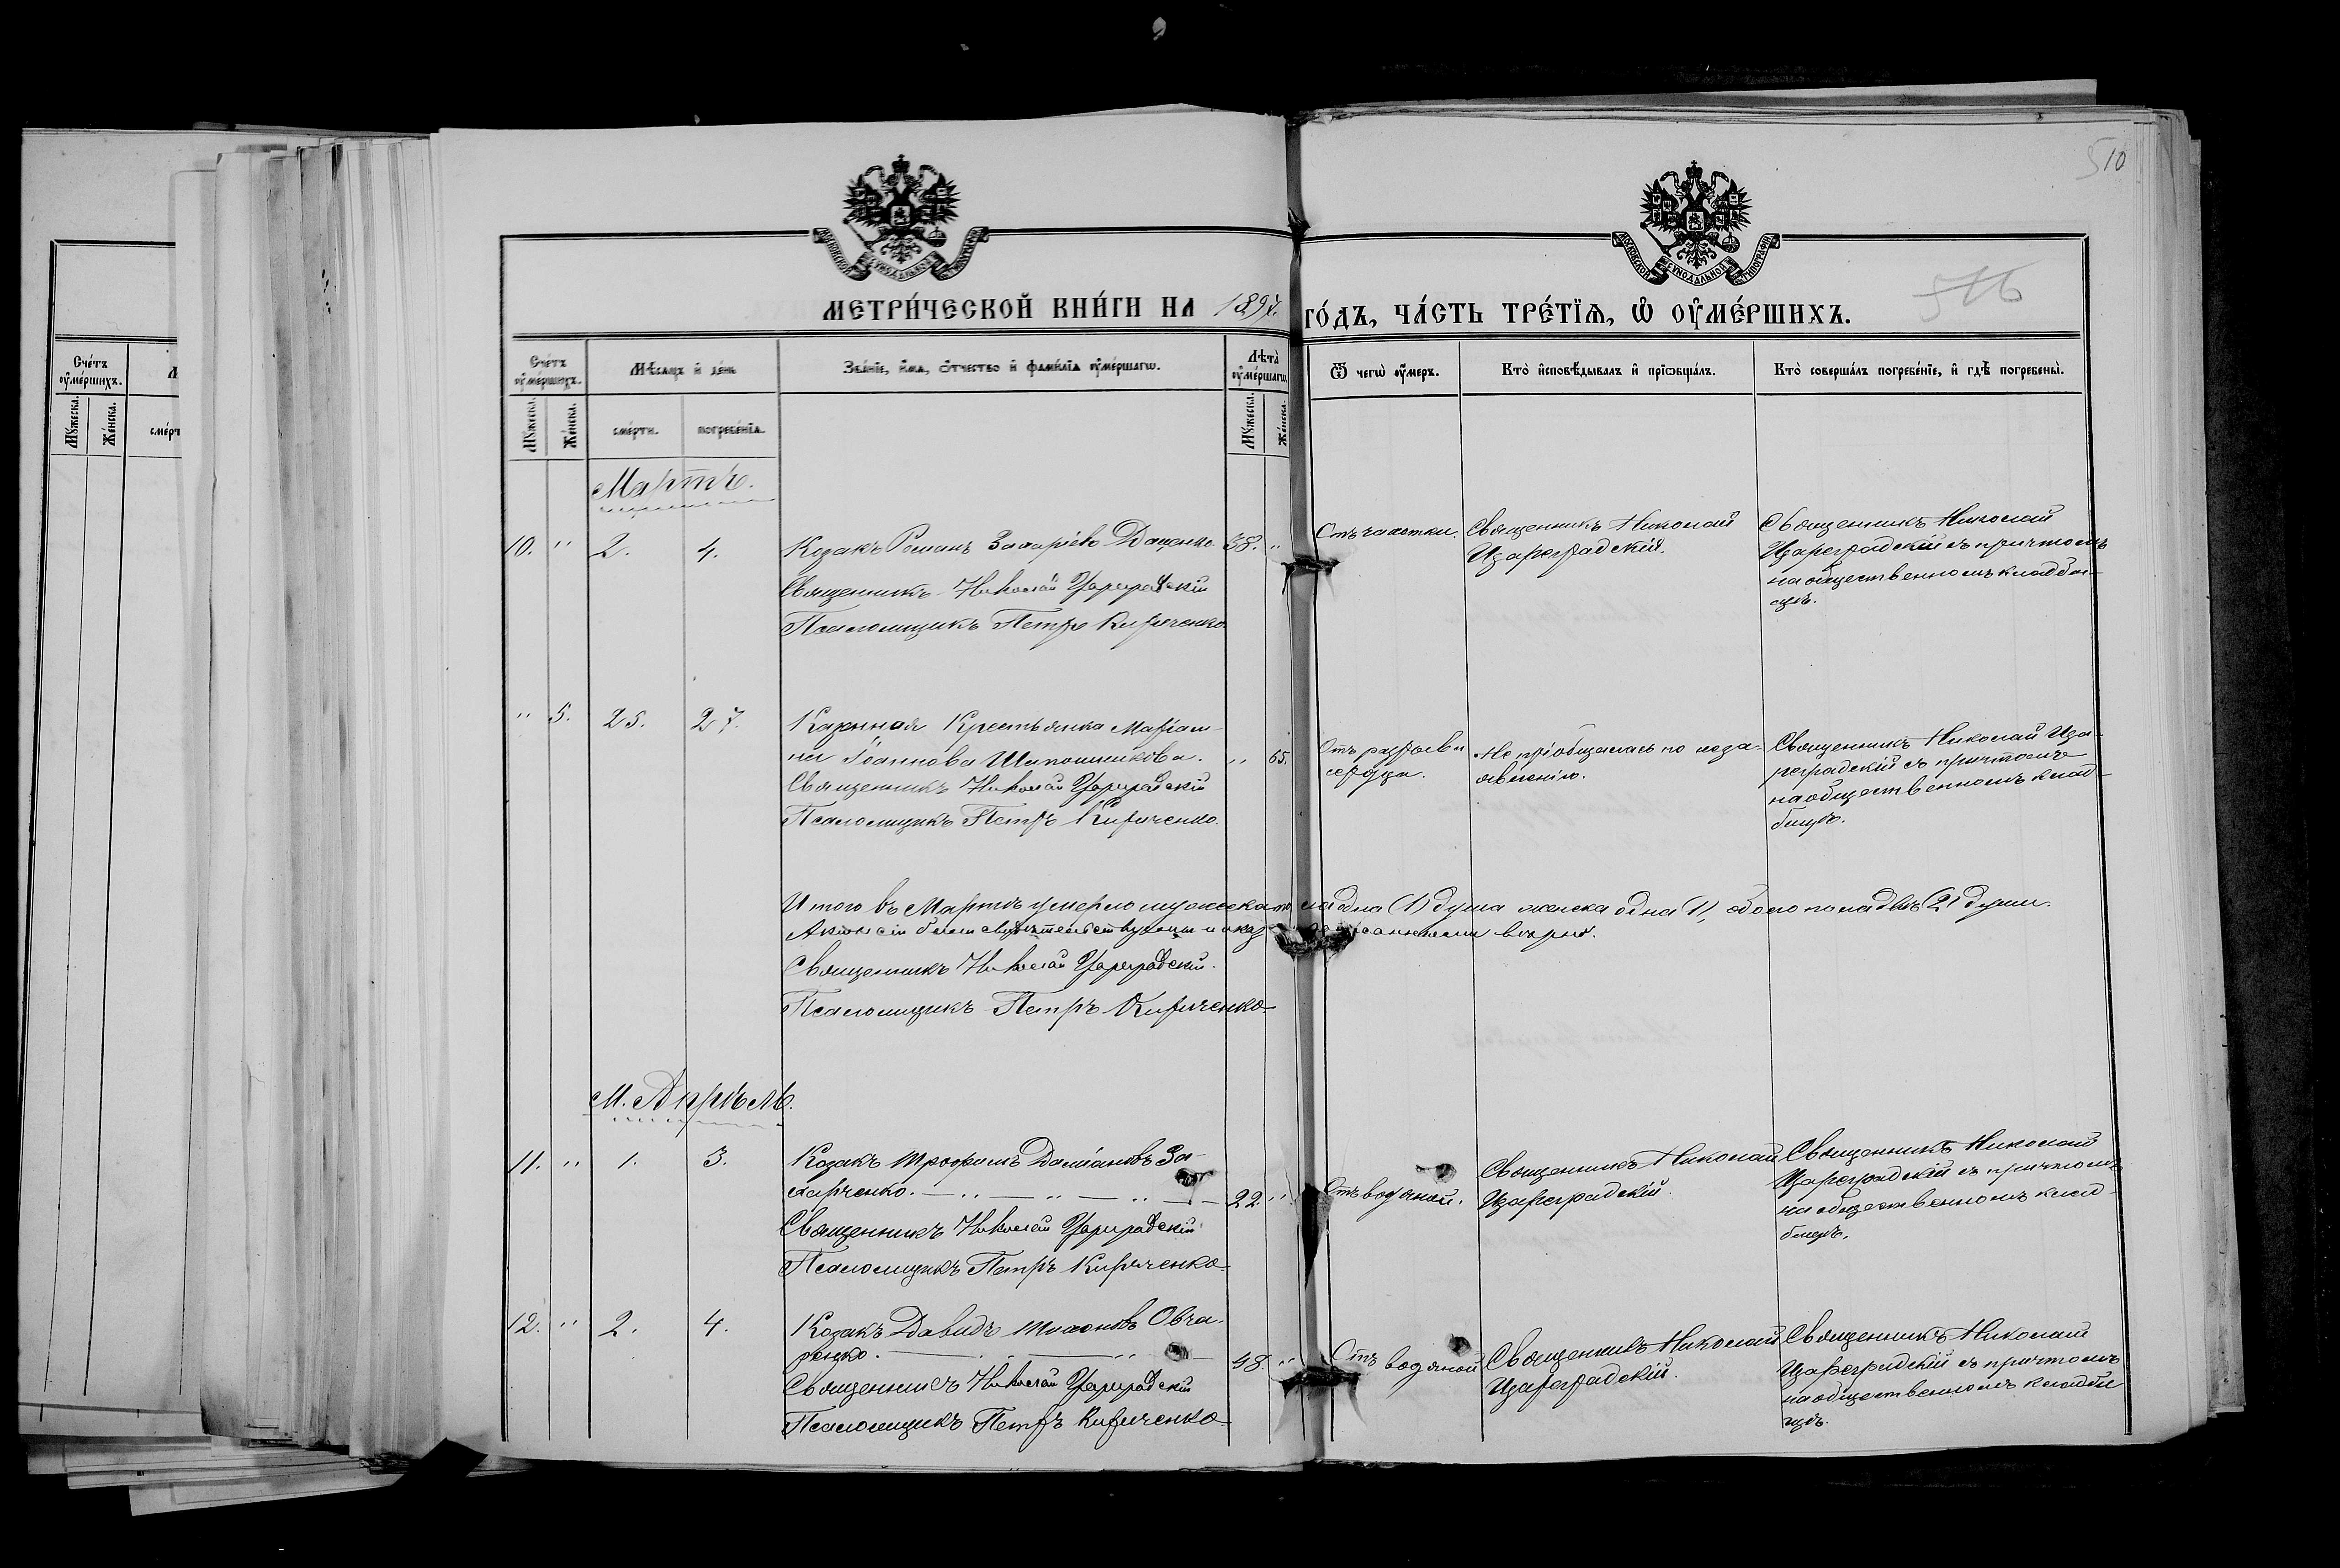 510
МОСКОВСКОЙ СУНОДАЛЬНОЙ ТИПОГРАФІИ
МОСКОВСКОЙ СУНОДАЛЬНОЙ ТИПОГРАФІИ
МЕТРИ́ЧЕСКОЙ КНИ́ГИ НА 1897. ГО́ДЪ, ЧА́СТЬ ТРЕ́ТЇѦ, Ѡ ОУМЕ́РШИХЪ.
516
Счетъ оумершихъ.
Мужеска.
Женска.
Мѣсяцъ и день
смерти.
погребенїа.
Званїе, имя, отчество и фамилїа оумершагѡ.
Лѣта оумершагѡ.
Мужеска.
Женска.
Ѿ чегѡ оумеръ.
Кто исповѣдывалъ и прїѡбщалъ.
Кто совершалъ погребенїе, и гдѣ погребены.
Счетъ
оумершихъ.
Мужеска.
Женска.
Мартъ.
10. " 2. 4. Козакъ Романъ Захаріевъ Даценко 38. "
Священникъ Николай Цареградскій
Псаломщикъ Петръ Кириченко
Отъ чахотки.
Священникъ Николай
Цареградскій.
Священникъ Николай
Цареградскій съ причтомъ
на общественномъ кладби-
щѣ.
" 5. 25. 27. Казенная Крестьянка Маріан-
на Іоаннова Шапошникова. " 65.
Священникъ Николай Цареградскій
Псаломщикъ Петръ Кириченко.
Отъ разрыва
сердца.
Не пріобщалась по неза-
явленію.
Священникъ Николай Ца-
реградскій съ причтомъ
на общественномъ клад-
бищѣ.
Итого въ Мартѣ умерло мужеска пола одна (1) душа женска одна (1), обоего пола двѣ (2) души.
Священникъ Николай Цареградскій.
Псаломщикъ Петръ Кириченко
М. Апрѣль.
11. " 1. 3. Козакъ Трофимъ Даміановъ За-
харченко. 22. "
Священникъ Николай Цареградскій
Псаломщикъ Петръ Кириченко
Отъ водяной.
Священникъ Николай
Цареградскій.
Священникъ Николай
Цареградскій съ причтомъ
на общественномъ клад-
бищѣ.
12. " 2. 4. Козакъ Давидъ Овча-
ренко. 48. "
Священникъ Николай Цареградскій
Псаломщикъ Петръ Кириченко
Отъ водяной
Священникъ Николай
Цареградскій.
Священникъ Николай
Цареградскій съ причтомъ
на общественномъ кладби
щѣ.